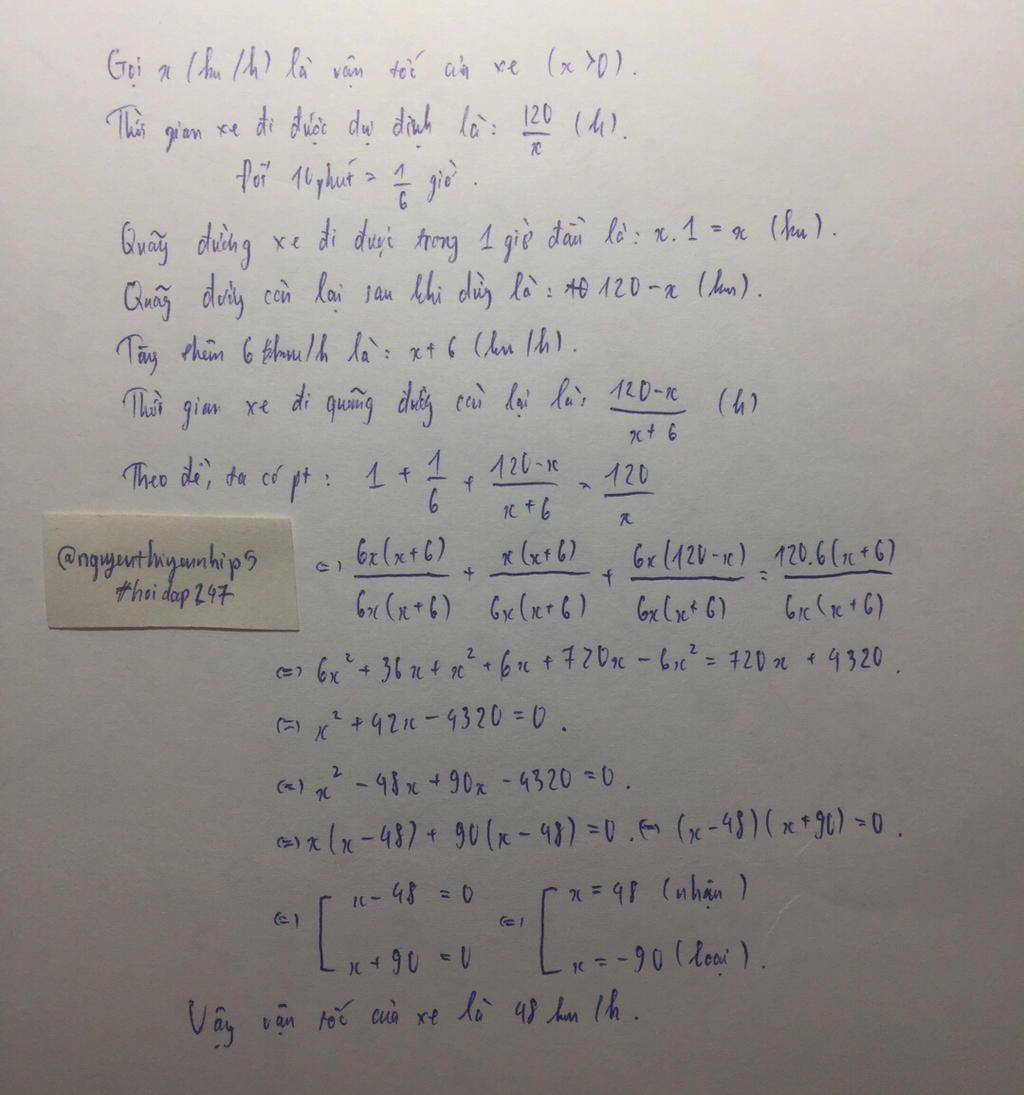 Gọi x (km/h) là vận tốc của xe (x>0).
Thời gian xe đi được dự định là: 120/x (h).
Đổi 10 phút = 1/6 giờ.
Quãng đường xe đi được trong 1 giờ đầu là: x.1 = x (km).
Quãng đường còn lại sau khi dừng là: 120-x (km).
Tăng thêm 6 km/h là: x+6 (km/h).
Thời gian xe đi quãng đường còn lại là: (120-x)/(x+6) (h)
Theo đề, ta có pt: 1 + 1/6 + (120-x)/(x+6) = 120/x
@nguyenthiyennhip5
#hoidap247
<=> 6x(x+6)/6x(x+6) + x(x+6)/6x(x+6) + 6x(120-x)/6x(x+6) = 120.6(x+6)/6x(x+6)
<=> 6x² + 36x + x² + 6x + 720x - 6x² = 720x + 4320.
<=> x² + 42x - 4320 = 0.
<=> x² - 48x + 90x - 4320 = 0.
<=> x(x-48) + 90(x-48) = 0. <=> (x-48)(x+90) = 0.
<=> [ x-48 = 0 <=> [ x = 48 (nhận)
x+90 = 0 x = -90 (loại).
Vậy vận tốc của xe là 48 km/h.